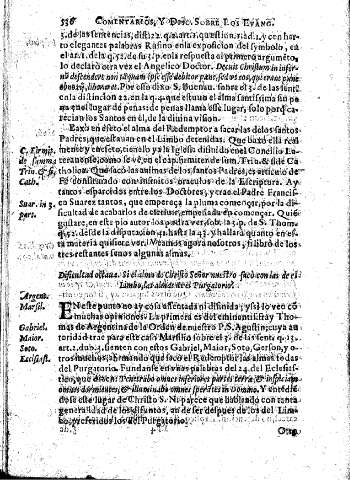 536 COMENTARIOS, Y DISC. SOBRE LOS EVANG.
3. de las sentencias, dist. 22. q. art. 2. question. 1. ad. 1. y con har
to elegantes palabras Rufino en la exposicion del symbolo, en
el art. 1. de la q. 52. de su 3. p. en la respuesta el primero argumẽto,
lo declaró otra vez el Angelico Doctor. Decuit Christum in infer
num descendere non tãquam ipse esset debitor pœnæ, sed vt eos, qui erant pœnæ
obnoxij, liberaret. Por esso dixo S. Buenau. sobre el 3. de las senté
cia distincion 22. en la q. 4. que estuuo el alma santissima sin pe
na en aquel lugar de penas: de penas llama esse lugar, solo por q̃ ca
recian los Santos en él, de la diuina vision.
Baxò en éfeto el alma del Redemptor a sacar las de los santos
Padres, que estauan en el Limbo detenidas. Que baxò ella real
mente y en éfeto, tienelo ya la Iglesia difinido en el Concilio La
teranense, como se vé, en el cap. firmiter de sum. Trin. & fide Ca
tholica. Que sacò las animas de los santos Padres, es articulo de
Fé construtado con infinitos oraculos de la Escriptura. Ay
tantos esparzidos entre los Doctores, y trae el Padre Francis-
co Suarez tantos, que empereça la pluma començar, por la di-
ficultad de acabarlos de escriuir, empeçando en començar. Qui
gustare, en este pio autor los podrà ver, sob. la 3. p. de S. Thom.
q. 52. desde la disputacion 42. hasta la 43. y hallarà quanto en es-
ta materia quisiere ver. Veamos agora nosotros, si librò de los
tres restantes senos algunas almas.
C. Firmit.
de summa
Trin. & fi.
Cath.
Suar. in 3.
part.
Dificultad octaua. Si el alma de Christo Señor nuestro sacò con las de el
Limbo, las almas de el Purgatorio?
EN este punto no ay cosa assentada ni difinida; y assi lo vẽcen
muchas opiniones. La primera es del eminentissi. fray Tho
mas de Argentina de la Orden de nuestro P. S. Agustin, cuya au
toridad trae para este caso Marsilio sobre el 3. de las sent. q. 13.
art. 2. dub. 3. sienten con estos Gabriel, Maior, Soto, Gerson, y o-
tros muchos, afirmando que sacò el Redemptor las almas todas
del Purgatorio. Fundanse en vnas palabras del 24. del Eclesias-
tico, que dizen: Penetrabo omnes inferiores partes terræ, & inspiciam
omnes dormientes, & illuminabo omnes sperantes in Domino. Y entẽdié
dose este lugar de Christo S. N. parece que hablando con tanta
generalidad de los difuntos, an de ser despues de los del Lim-
bo, preferidos los del Purgatorio.
Argent.
Marsil.
Gabriel.
Maior.
Soto.
Otra